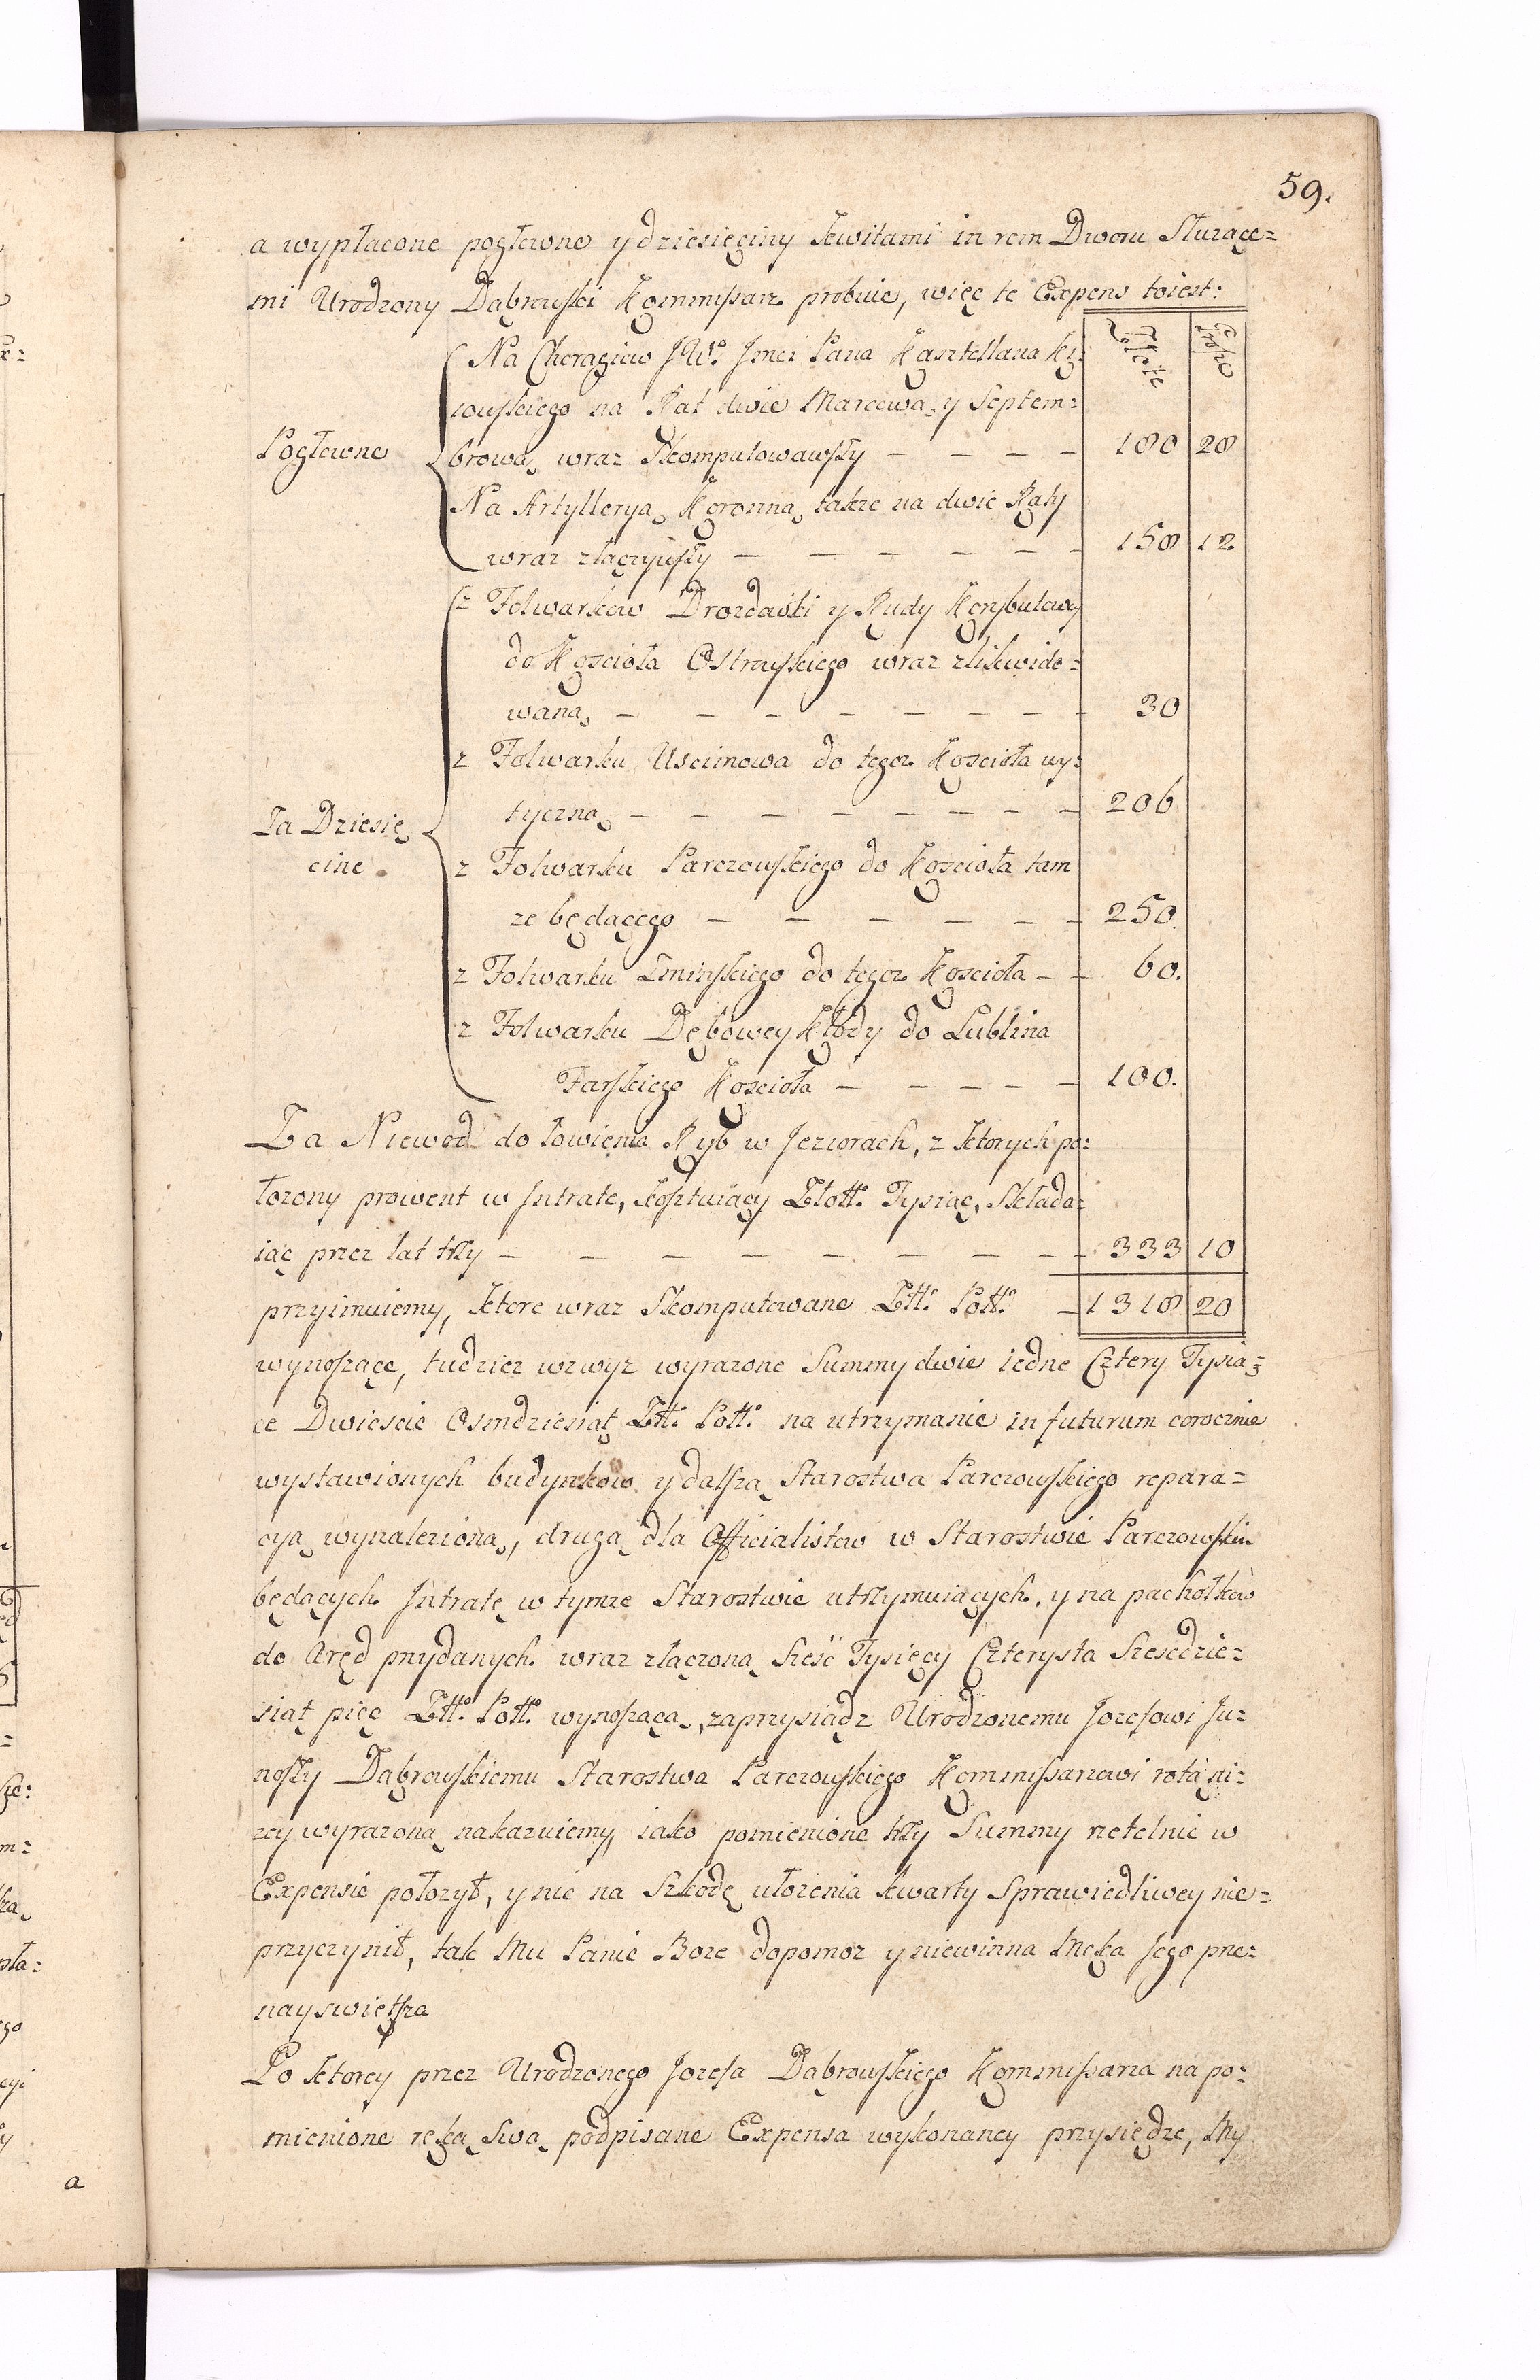 59.
a wypłacone pogłewne y dziesięciny kwitami in rem Dworu Służące=
mi Urodzony Dąbrowski Kommissarz probuie, więc te Expens toiest:
Złote Grosze
Na Chorągiew JW° Jmci Pana Kasztellana Ki=
iowskiego na Rat dwie Marcową, y Septem=
Pogłewne browa, wraz Skomputowawszy — — — — 180 28
Na Artyllerya, Koronną, także na dwie Raty
wraz złączywszy — — — — — 158 12
z Folwarków Drozdówki y Rudy Korybutowey
do Kościoła Ostrowskiego wraz zlikwido=
waną — — — — — — — 30
z Folwarku Uscimowa do tegoz Kościoła wy=
tyczną — — — — — — — 206
Za Dziesię
cine. z Folwarku Parczowskiego do Kościoła tam
że będącego — — — — — 250.
z Folwarku Zminskiego do tegoz Kościoła — — 60.
z Folwarku Dębowey Kłody do Lublina
Farskiego Kościoła — — — — — 100.
Za Niewód do łowienia Ryb w Jeziorach, z ktorych po=
łozony prowent w Intrate, kosztuiący Złott: Tysiąc, Składa=
iąc przez lat trzy — — — — — — — 333 10
przyimuiemy, ktore wraz Skomputowane Złł: Poll: — 1318 20
wynoszące, tudzież wzwyz wyrazone Summy dwie iedne Cztery Tysią=
ce Dwieście Osmdziesiąt Złł: Poll: na utrzymanie in futurum corocznie
wystawionych budynków y dalszą Starostwa Parczowskiego repara=
cyą wynaleziona, drugą dla Officialistow w Starostwie Parczowskim
będących Intratę w tymze Starostwie utrzymuiących, y na pachołków
do Aręd przydanych wraz złączoną Sześć Tysięcy Czterysta Szescdzie=
siąt pięć Złł: Poll: wynoszącą, zaprzysiądz Urodzonemu Jozefowi Ju=
noszy Dąbrowskiemu Starostwa Parczowskiego Kommissarzowi rotą ni=
zey wyrazoną nakazuiemy, iako pomienione trzy Summy rzetelnie w
Expensie położył, y nic na Szkodę ułożenia kwarty Sprawiedliwey nie=
przyczynił, tak Mu Panie Boze dopomoz y niewinna Męka Jego prze=
nayswiętsza
Po ktorey przez Urodzonego Jozefa Dąbrowskiego Kommissarza na po=
mienione ręką swą podpisane Expensa wykonaney przysiędze, My
a